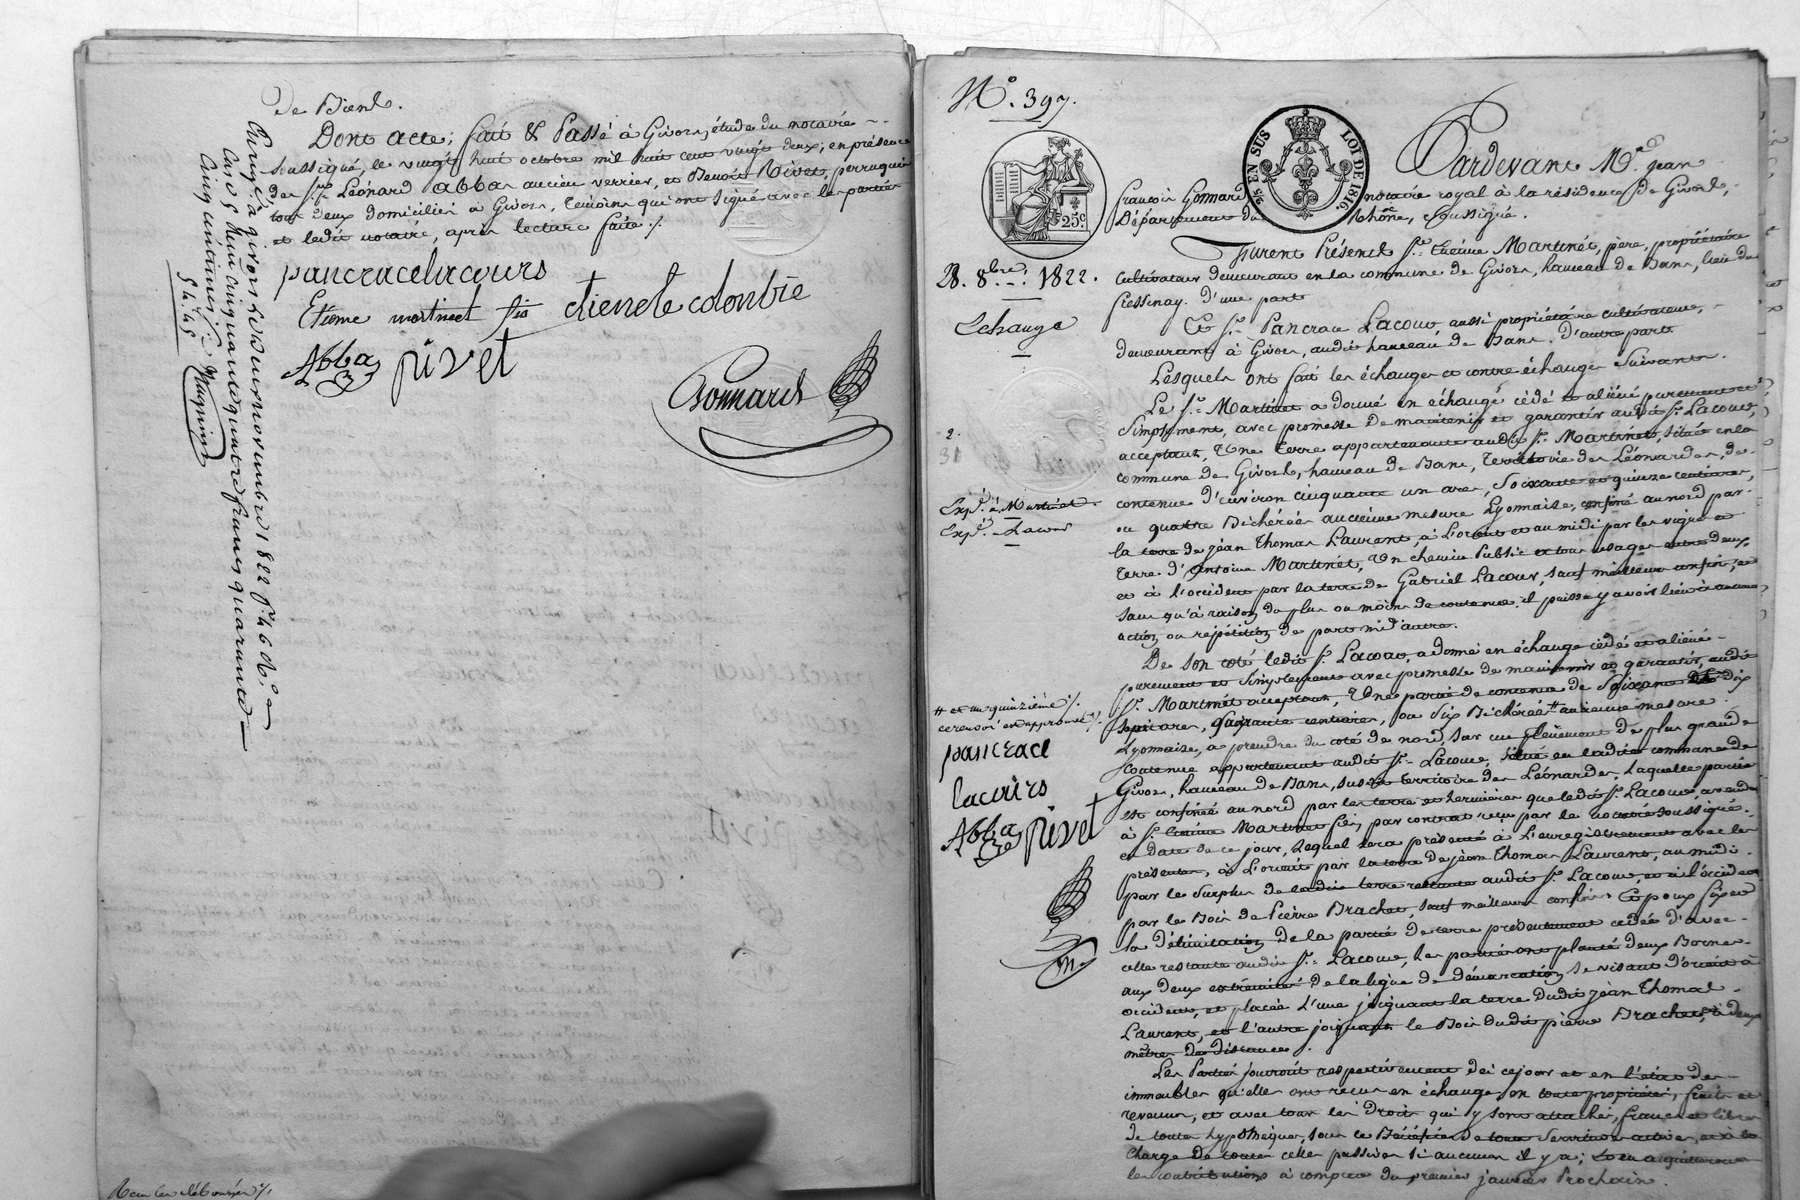 De Biens.
Dont acte; fait & Passé à Givors, étude du notaire
soussigné, le vingt huit octobre mil huit cent vingt deux; en présence
des Srs Léonard Abba ancien verrier, et Benoit Rivet, perruquier
tous deux domiciliés à Givors, témoins qui ont signé avec les parties
et ledit notaire, après lecture faite ./.
pancrace lacours
Etiene martinet fis etienele colonbie
Abba rivet
Gonnard
Enregé à givors le deux novembre 1822 fo 46 Ro. Ca
Caro 5 Reçu cinquante quatre francs quarante
cinq centimes
54.45
Nº. 397.
28. 8bre. 1822.
Echange
2.
31
Expd. à Martinet
Expd. à Lacour
# et un quinzième ./.
ce renvoi est approuvé ./.
pancrace
lacours
Abba rivet
525c
25 EN SUS LOI DE 1816
Pardevant Me. jean
françois Gonnard notaire royal à la résidence de Givors,
Département du Rhône, soussigné.
Furent Présens Sr. Etienne Martinet, père, propriétaire
cultivateur demeurant en la commune de Givors, hameau de Bans, lieu du
fressinay. d'une part
Et Sr. Pancrace Lacour, aussi propriétaire cultivateur,
demeurant à Givors, audit hameau de Bans. d'autre part
Lesquels ont fait les échanges et contre échanges Suivants.
Le Sr. Martinet a donné en échange cédé et aliéné purement et
Simplement, avec promesse de maintenir et garantir audit Sr. Lacour,
acceptant, Une terre appartenante audit Sr. Martinet, située en la
commune de Givors, hameau de Bans, territoire des Léonardes, de
contenue d'environ cinquante un ares, soixante et quinze centiares,
ou quatre Bichérées ancienne mesure Lyonnaise, confiné au nord par
la terre de jean Thomas Laurent, à L'orient et au midi par les vigne et
terre d'Antoine Martinet, Un chemin Public et tous usages entre deux
et à l'occident par la terre de Gabriel Lacour, sauf meilleurs confins, et
sans qu'à raison du plus ou moins de contenue, il puisse y avoir lieu à aucune
action ou répétition de part ni d'autre.
De son coté ledit Sr. Lacour, a donné en échange cédé et aliéné
purement et simplement avec promesse de maintenir et garantir, audit
Sr. Martinet acceptant, Une partie de contenue de Soixante dix
sept ares, quarante centiares, ou Six Bichérées # ancienne mesure
Lyonnaise, à prendre du coté de nord, sur un plus grande
contenue appartenant audit Sr. Lacour, situé en ladite commune de
Givors, hameau de Bans, susdit territoire des Léonardes, Laquelle partie
est confinée au nord par les terre et hermières que ledit Sr. Lacour, a vendu
à Sr. Etienne Martinet fils, par contrat reçu par le notaire soussigné
en date de ce jour, Lequel sera présenté à L'enregistrement avec les
présentes, à L'orient par la terre de jean Thomas Laurent, au midi
par le Surplus de ladite terre restante audit Sr. Lacour, et à l'occident
par le Bois de Pierre Brachet, sauf meilleurs confins. Et pour fixer
la délimitation de la partie de terre présentement cédée d'avec
celle restante audit Sr. Lacour, les parties ont planté deux Bornes
aux deux extremités de la ligne de démarcation se visant d'orient à
occident, et placée L'une joignant la terre dudit jean Thomas
Laurent, et l'autre joignant le Bois dudit pierre Brachet, à deux
mètres de distance.
Les Parties jouiront respectivement dès ce jour et en l'état des
immeubles qu'elles ont reçus en échange, en toute propriété, fruits et
revenus, et avec tous les Droits qui y sont attachés, francs et libres
de toutes hypothèques, sous le Bénéfice de toutes Servitudes actives, et à la
charge de toutes celles passives si aucunes il y a; et en acquitteront
les contributions à compter du premier janvier Prochain.